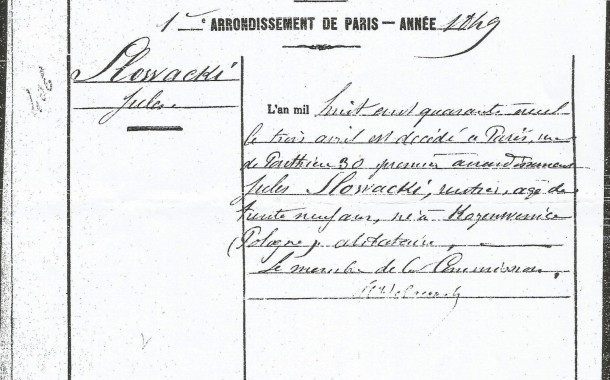 1er ARRONDISSEMENT DE PARIS — ANNÉE 1849
Slowacki
Jules
L'an mil huit cent quarante neuf
le trois avril est décédé à Paris, rue
de Ponthieu 30 premier arrondissement
Jules Slowacki, rentier, agé de
trente neuf ans, né à
(Pologne) célibataire,
Le membre de la Commission,